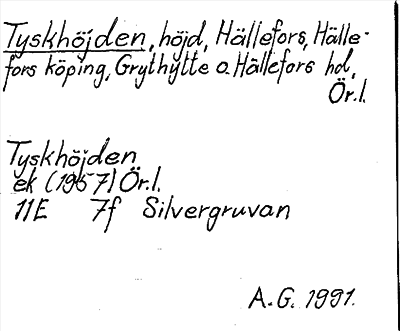 Tyskhöjden, höjd, Hällefors, Hälle-
fors köping, Grythytte o. Hällefors hd,
Ör.l.
Tyskhöjden
ek (1957) Ör.l.
11E 7f Silvergruvan
A.G. 1991.